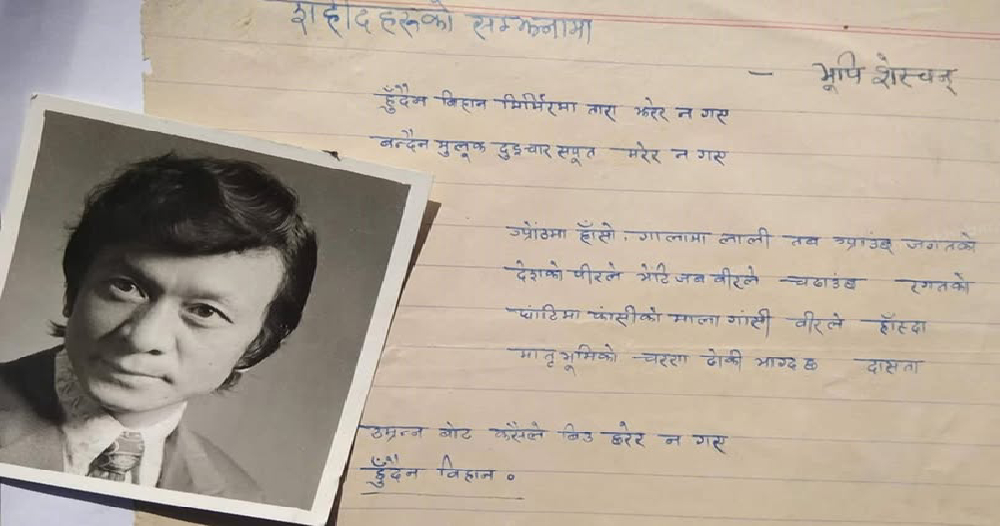 शहीदहरूको सम्झनामा
— भूपि शेरचन्
हुँदैन बिहान मिर्मिरमा तारा झरेर न गए
बन्दैन मुलुक दुइचार सपूत मरेर न गए
ओंठमा हाँसो, गालामा लाली तब आउंछ जगतको
देशको पीरले भेटि जब वीरले चढाउंछ रगतको
घांटिमा फांसीको माला गांसी वीरले हाँस्दा
मातृभूमिको चरण ढोकी भाग्दछ दासता
उम्रन्न बोट कसैले बिउ छरेर न गए
हुँदैन विहान ।